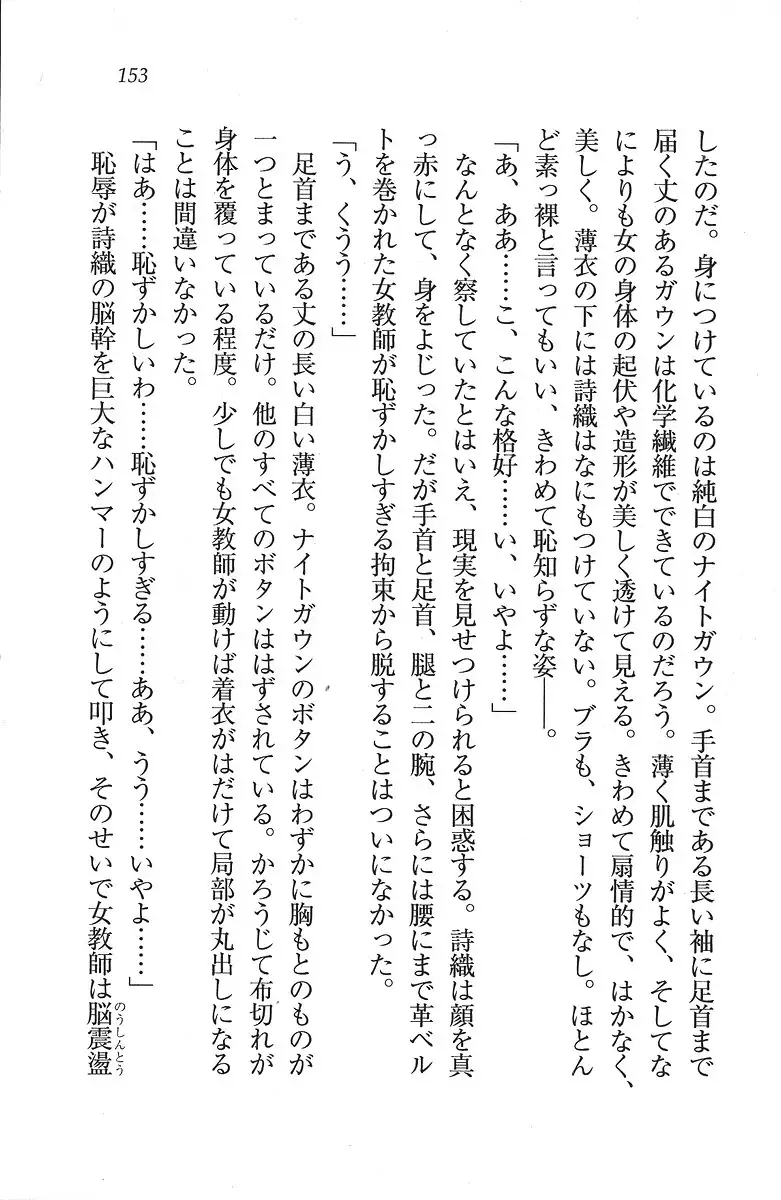 153
したのだ。身につけているのは純白のナイトガウン。手首まである長い袖に足首まで
届く丈のあるガウンは化学繊維でできているのだろう。薄く肌触りがよく、そしてな
によりも女の身体の起伏や造形が美しく透けて見える。きわめて扇情的で、はかなく、
美しく。薄衣の下には詩織はなにもつけていない。ブラも、ショーツもなし。ほとん
ど素っ裸と言ってもいい、きわめて恥知らずな姿――。
「あ、ああ……こ、こんな格好……い、いやよ……」
なんとなく察していたとはいえ、現実を見せつけられると困惑する。詩織は顔を真
っ赤にして、身をよじった。だが手首と足首、腿と二の腕、さらには腰にまで革ベル
トを巻かれた女教師が恥ずかしすぎる拘束から脱することはついになかった。
「う、くうう……」
足首まである丈の長い白い薄衣。ナイトガウンのボタンはわずかに胸もとのものが
一つとまっているだけ。他のすべてのボタンははずされている。かろうじて布切れが
身体を覆っている程度。少しでも女教師が動けば着衣がはだけて局部が丸出しになる
ことは間違いなかった。
「はあ……恥ずかしいわ……恥ずかしすぎる……ああ、うう……いやよ……」
恥辱が詩織の脳幹を巨大なハンマーのようにして叩き、そのせいで女教師は脳震盪
のうしんとう